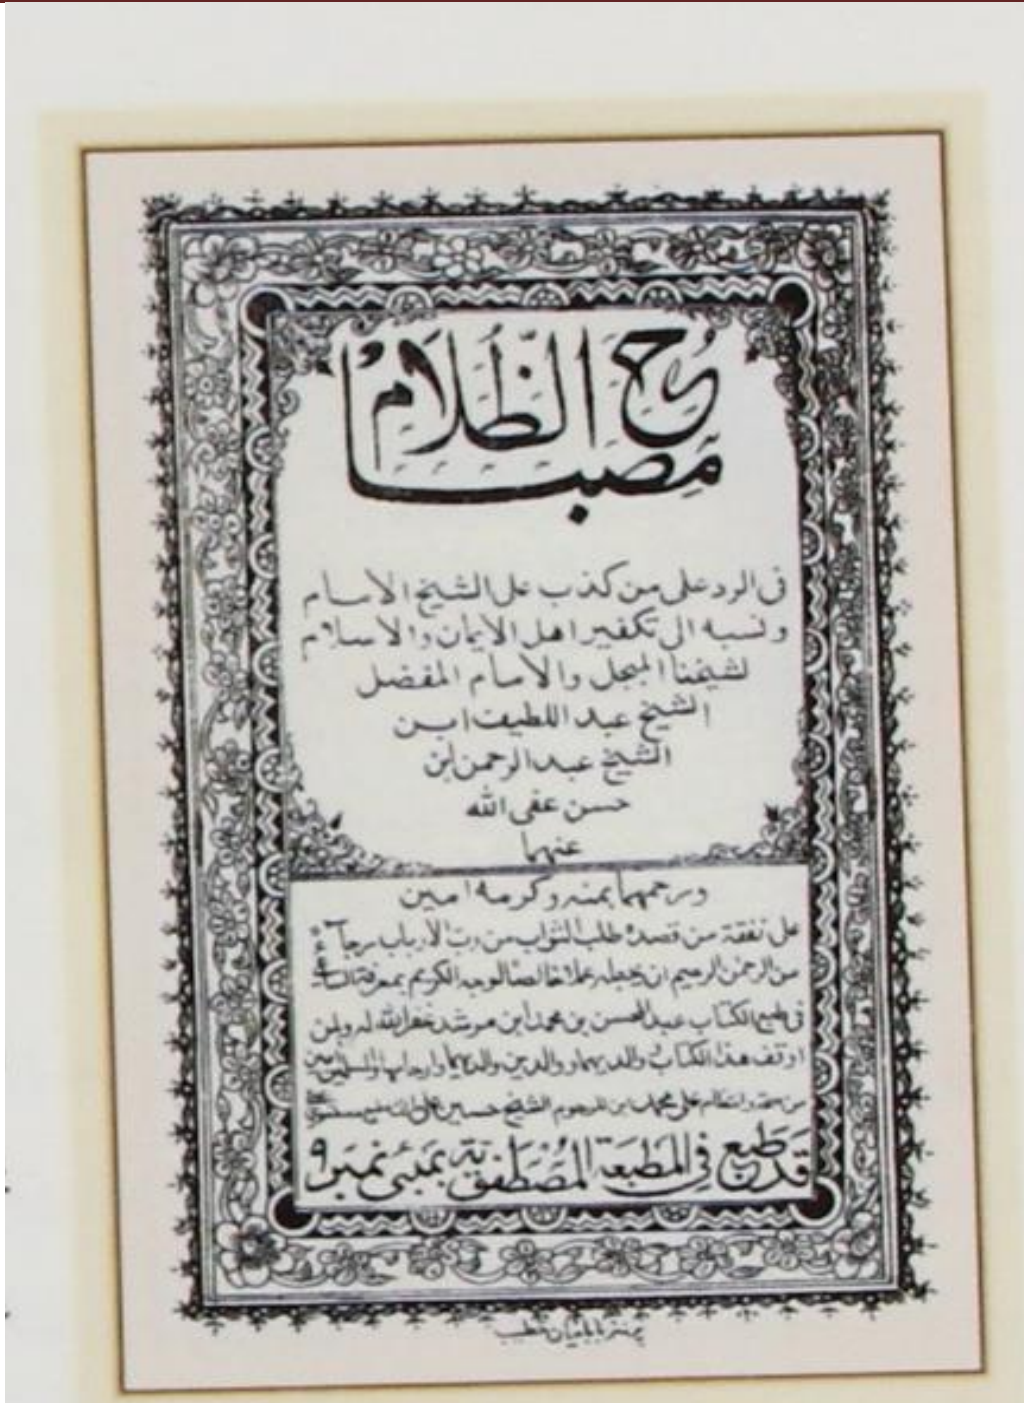 مصباح الظلام
في الرد على من كذب على الشيخ الامام
ونسبه الى تكفير اهل الايمان والاسلام
لشيخنا المبجل والامام المفضل
الشيخ عبد اللطيف ابن
الشيخ عبد الرحمن ابن
حسن عفى الله
عنهما
ورحمهما بمنه وكرمه امين
على نفقة من قصده طلب الثواب من رب الارباب رجاء
من الرحمن الرحيم ان يجعله عملا خالصا لوجهه الكريم بمعرفة
في طبع الكتاب عبد المحسن بن محمد ابن مرشد غفر الله له ولمن
اوقف هذا الكتاب ولوالديهما ووالدين والديهما والمسلمين
على محمد ابن المرحوم الشيخ حسين على
قد طبع في المطبعة المصطفوية بمبئي نمبر ٩